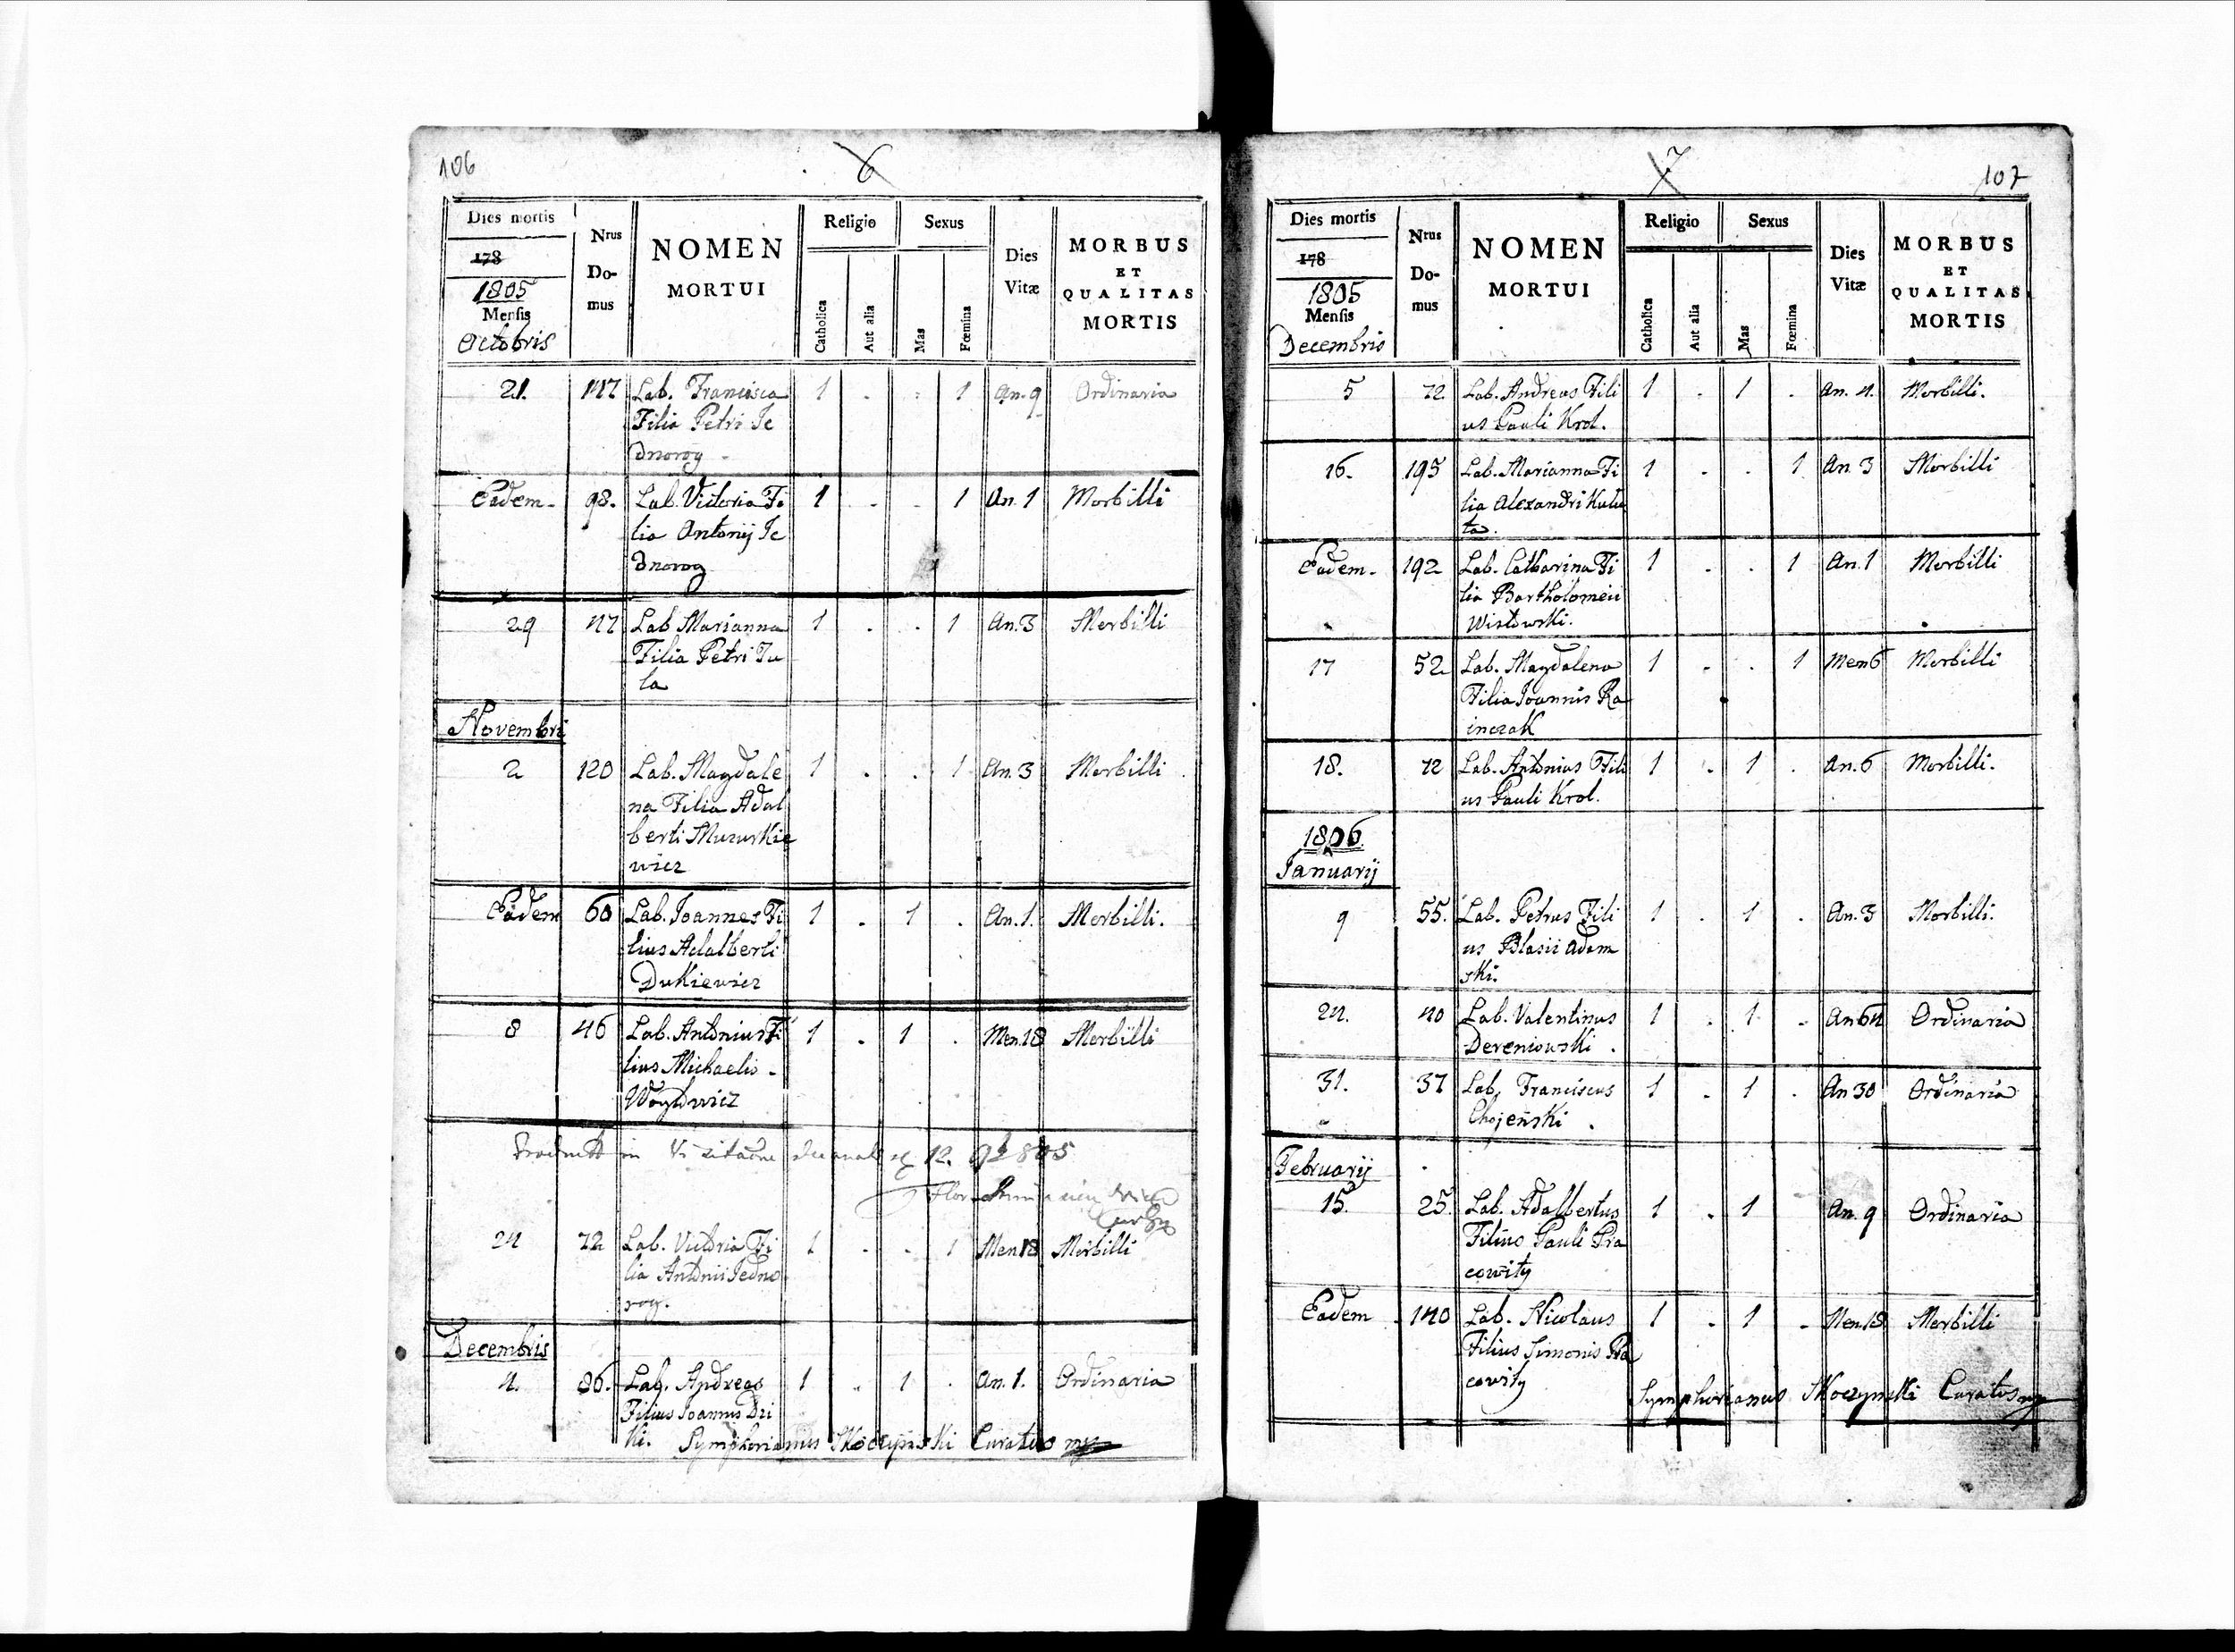 106
6
Dies mortis
178
1805
Mensis
Octobris
Nrus
Do-
mus
NOMEN
MORTUI
Religio
Catholica
Aut alia
Sexus
Mas
Fœmina
Dies
Vitæ
MORBUS
ET
QUALITAS
MORTIS
21. 147 Lab. Francisca 1 . . 1 An. 9 Ordinaria
Filia Petri Je
dnorog
Eadem. 98. Lab. Victoria Fi 1 . . 1 An. 1 Morbilli
lia Antonij Je
dnorog
29 47 Lab Marianna 1 . . 1 An. 3 Morbilli
Filia Petri Tu
la
Novembri
2 120 Lab. Magdale 1 . . 1 An. 3 Morbilli
na Filia Adal
berti Muzurkie
wicz
Eadem 60 Lab. Joannes Fi 1 . 1 . An. 1. Morbilli.
lius Adalberti
Dukiewicz
8 46 Lab. Antonius Fi 1 . 1 . Men. 18 Morbilli
lius Michaelis
Woytowicz
in 12. 805
24 72 Lab. Victoria Fi 1 . . 1 Men 18 Morbilli
lia Antonii Jedno
rog.
Decembris
4. 86. Lab. Andreas 1 . 1 . An. 1. Ordinaria
Filius Joannis Dzi
ki. Symphorianus Skoczynski Curatus mp
7
107
Dies mortis
178
1805
Mensis
Decembris
Nrus
Do-
mus
NOMEN
MORTUI
Religio
Catholica
Aut alia
Sexus
Mas
Fœmina
Dies
Vitæ
MORBUS
ET
QUALITAS
MORTIS
5 72 Lab. Andreas Fili 1 . 1 . An. 4. Morbilli.
us Pauli Krol.
16. 195 Lab. Marianna Fi 1 . . 1 An 3 Morbilli
lia Alexandri Kulu
ta.
Eadem. 192 Lab. Catharina Fi 1 . . 1 An. 1 Morbilli
lia Bartholomeii
Wistowski.
17 52 Lab. Magdalena 1 . . 1 Men 6 Morbilli
Filia Joannis Ra
inczak
18. 72 Lab. Antonius Fili 1 . 1 . An. 6 Morbilli.
us Pauli Krol.
1806.
Januarij
9 55. Lab. Petrus Fili 1 . 1 . An. 3 Morbilli.
us Blasii Adam
ski.
24. 40 Lab. Valentinus 1 . 1 . An 64 Ordinaria
Dereniowski .
31. 37 Lab. Franciscus 1 . 1 . An 30 Ordinaria
Chojenski .
Februarij
15. 25. Lab. Adalbertus 1 . 1 An. 9 Ordinaria
Filius Pauli Pra
cowity
Eadem 140 Lab. Nicolaus 1 . 1 . Men. 18 Morbilli
Filius Simonis Pra
cowity
Symphorianus Skoczynski Curatus mp